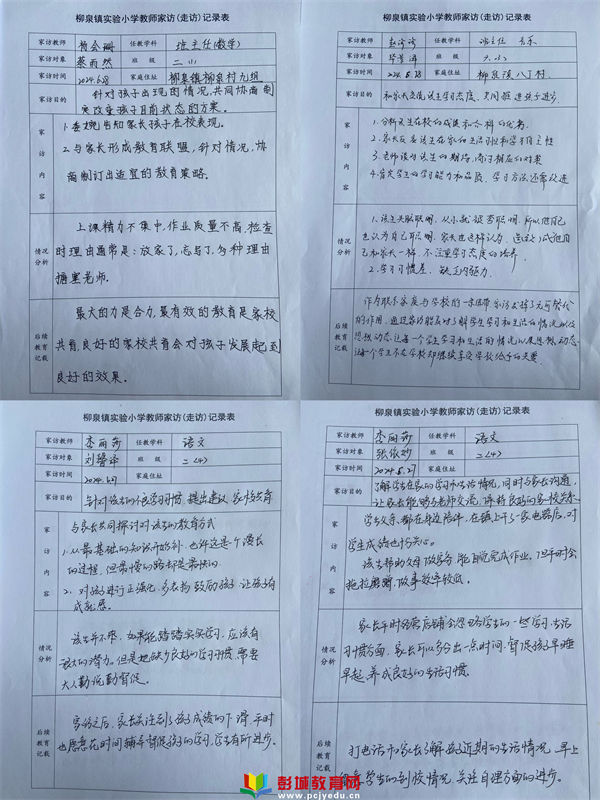 柳泉镇实验小学教师家访(走访)记录表
家访教师 任教学科 班主任(数学)
家访对象 蔡雨然 班 级
家访时间 2024.6.28 家庭住址 柳泉镇柳泉村九组
家访目的 针对孩子出现的情况,共同协商制
定改变孩子目前状态的方案。
家访内容
1.委婉告知家长孩子在校表现。
2.与家长形成教育联盟,针对情况,协
商制订出适宜的教育策略。
情况分析
上课精力不集中,作业质量不高,检查
时理由通常是:放家了,忘写了,各种理由
搪塞老师。
后续教育记载
最大的力是合力,最有效的教育是家校
共育,良好的家校共育会对孩子发展起到
良好的效果。
柳泉镇实验小学教师家访(走访)记录表
家访教师 任教学科 班主任 音乐
家访对象 班 级
家访时间 家庭住址 柳泉镇八丁村
家访目的 和家长交流该生学习态度、
家访内容
1.分析该生在校的成长和各科的优势
2.家长反应该生在家的生活习惯和学习自主性
3.老师谈对该生的期待,商讨相应的对策
4.肯定学生的学习能力和品质,学习方法还需改进
情况分析
1.该生头脑聪明,从小就被夸聪明,所以他自己
也认为自己聪明,家长也这样认为,
和家长一样,不注重学习态度的培养
2.学习习惯差,缺乏内驱力。
后续教育记载
作为联系家庭与学校的一条纽带,家访发挥了无可替代
的作用,
思想动态,让每一个学生学习和生活的情况以及思想动态
让每一个学生不在学校却继续享受学校给予的关爱
柳泉镇实验小学教师家访(走访)记录表
家访教师 李丽莎 任教学科 语文
家访对象 班 级 二(4)
家访时间 2024.6.27 家庭住址
家访目的 针对该生的不良学习习惯,提出建议,家校共育
家访内容
与家长共同探讨对该生的教育方式
1.从最基础的知识开始补,也许这是个漫长
的过程,但最慢的路却是最快的。
2.对孩子进行正强化,多表扬鼓励孩子,让孩子有
成就感。
情况分析
该生并不笨,如果能踏踏实实学习,应该有
很大的潜力。但是她缺少良好的学习习惯,需要
大人勤促勤督促。
后续教育记载
家访之后,家长关注到了孩子成绩的下滑,平时
也愿意花时间辅导督促孩子的学习,学生有所进步。
柳泉镇实验小学教师家访(走访)记录表
家访教师 李丽莎 任教学科 语文
家访对象 张依妙 班 级 二(4)
家访时间 2024.6.27 家庭住址
家访目的 了解学生在家的学习和生活情况,同时与家长沟通,
让家长能够与老师交流,保持良好的家校关系
家访内容
学生父亲,都在身边陪伴,在镇上开了一家电器店,对
学生成绩也十分关心。
该生帮助父母做家务,能自觉完成作业,但平时会
拖拉磨蹭,做事效率较低。
情况分析
家长平时经营店铺会忽略学生的一些学习生活
习惯方面,家长可以多分出一点时间,督促孩子早睡
早起,养成良好的生活习惯。
后续教育记载
打电话和家长了解孩子近期的生活情况,早上
学生的到校情况,关注自理方面的进步。
彭城教育网
www.pcjyedu.cn